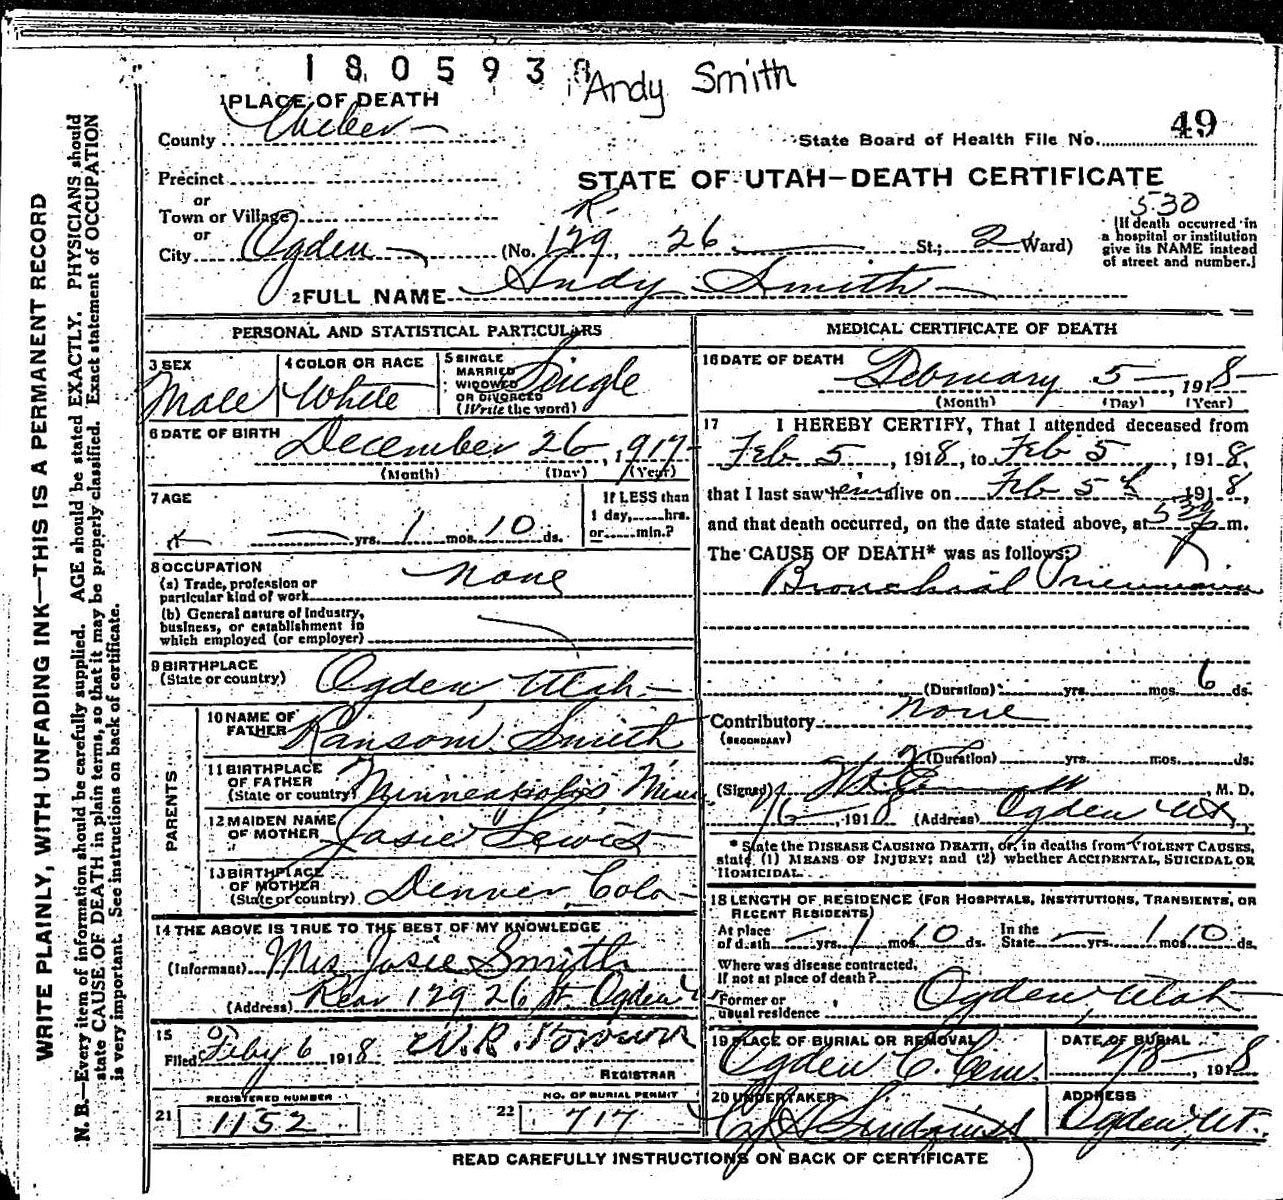 1805938
Andy Smith
1 PLACE OF DEATH
County Weber
State Board of Health File No. 49
Precinct
STATE OF UTAH—DEATH CERTIFICATE
or
Town or Village
R
530
or
City Ogden (No. 129 26 St.; 2 Ward)
[If death occurred in
a hospital or institution
give its NAME instead
of street and number.]
2 FULL NAME Andy Smith
PERSONAL AND STATISTICAL PARTICULARS
3 SEX
Male
4 COLOR OR RACE
White
5 SINGLE
MARRIED
WIDOWED
OR DIVORCED
(Write the word)
Single
6 DATE OF BIRTH December 26, 1917
(Month) (Day) (Year)
7 AGE
— yrs. 1 mos. 10 ds.
If LESS than
1 day, hrs.
or min.?
8 OCCUPATION
(a) Trade, profession or
particular kind of work None
(b) General nature of Industry,
business, or establishment in
which employed (or employer)
9 BIRTHPLACE
(State or country) Ogden, Utah
PARENTS
10 NAME OF
FATHER Ransom Smith
11 BIRTHPLACE
OF FATHER
(State or country) Minneapolis Minn
12 MAIDEN NAME
OF MOTHER Josie Lewis
13 BIRTHPLACE
OF MOTHER
(State or country) Denver, Colo
14 THE ABOVE IS TRUE TO THE BEST OF MY KNOWLEDGE
(Informant) Mrs Josie Smith
(Address) Rear 129 26 St Ogden
15
Filed Feby 6 1918 W.R. Brown
REGISTRAR
REGISTERED NUMBER
21 1152
NO. OF BURIAL PERMIT
22 717
MEDICAL CERTIFICATE OF DEATH
16 DATE OF DEATH February 5 1918
(Month) (Day) (Year)
17 I HEREBY CERTIFY, That I attended deceased from
Feb 5, 1918, to Feb 5, 1918,
that I last saw him alive on Feb 5th 1918,
and that death occurred, on the date stated above, at 530 P m.
The CAUSE OF DEATH* was as follows:
Bronchial Pneumonia
(Duration) yrs. mos. 6 ds.
Contributory None
(SECONDARY)
(Duration) yrs. mos. ds.
(Signed) , M. D.
2/6, 1918 (Address) Ogden Ut,
* State the DISEASE CAUSING DEATH, or, in deaths from VIOLENT CAUSES,
state (1) MEANS OF INJURY; and (2) whether ACCIDENTAL, SUICIDAL OR
HOMICIDAL.
18 LENGTH OF RESIDENCE (FOR HOSPITALS, INSTITUTIONS, TRANSIENTS, OR
RECENT RESIDENTS)
At place
of death — yrs. 1 mos. 10 ds.
In the
State — yrs. 1 10 ds.
Where was disease contracted,
If not at place of death?
Former or
usual residence Ogden Utah
19 PLACE OF BURIAL OR REMOVAL
Ogden C. Cem.
DATE OF BURIAL
2/8, 1918
20 UNDERTAKER
ADDRESS
Ogden Ut.
READ CAREFULLY INSTRUCTIONS ON BACK OF CERTIFICATE
WRITE PLAINLY, WITH UNFADING INK—THIS IS A PERMANENT RECORD
N. B.—Every item of information should be carefully supplied. AGE should be stated EXACTLY. PHYSICIANS should
state CAUSE OF DEATH in plain terms, so that it may be properly classified. Exact statement of OCCUPATION
is very important. See instructions on back of certificate.